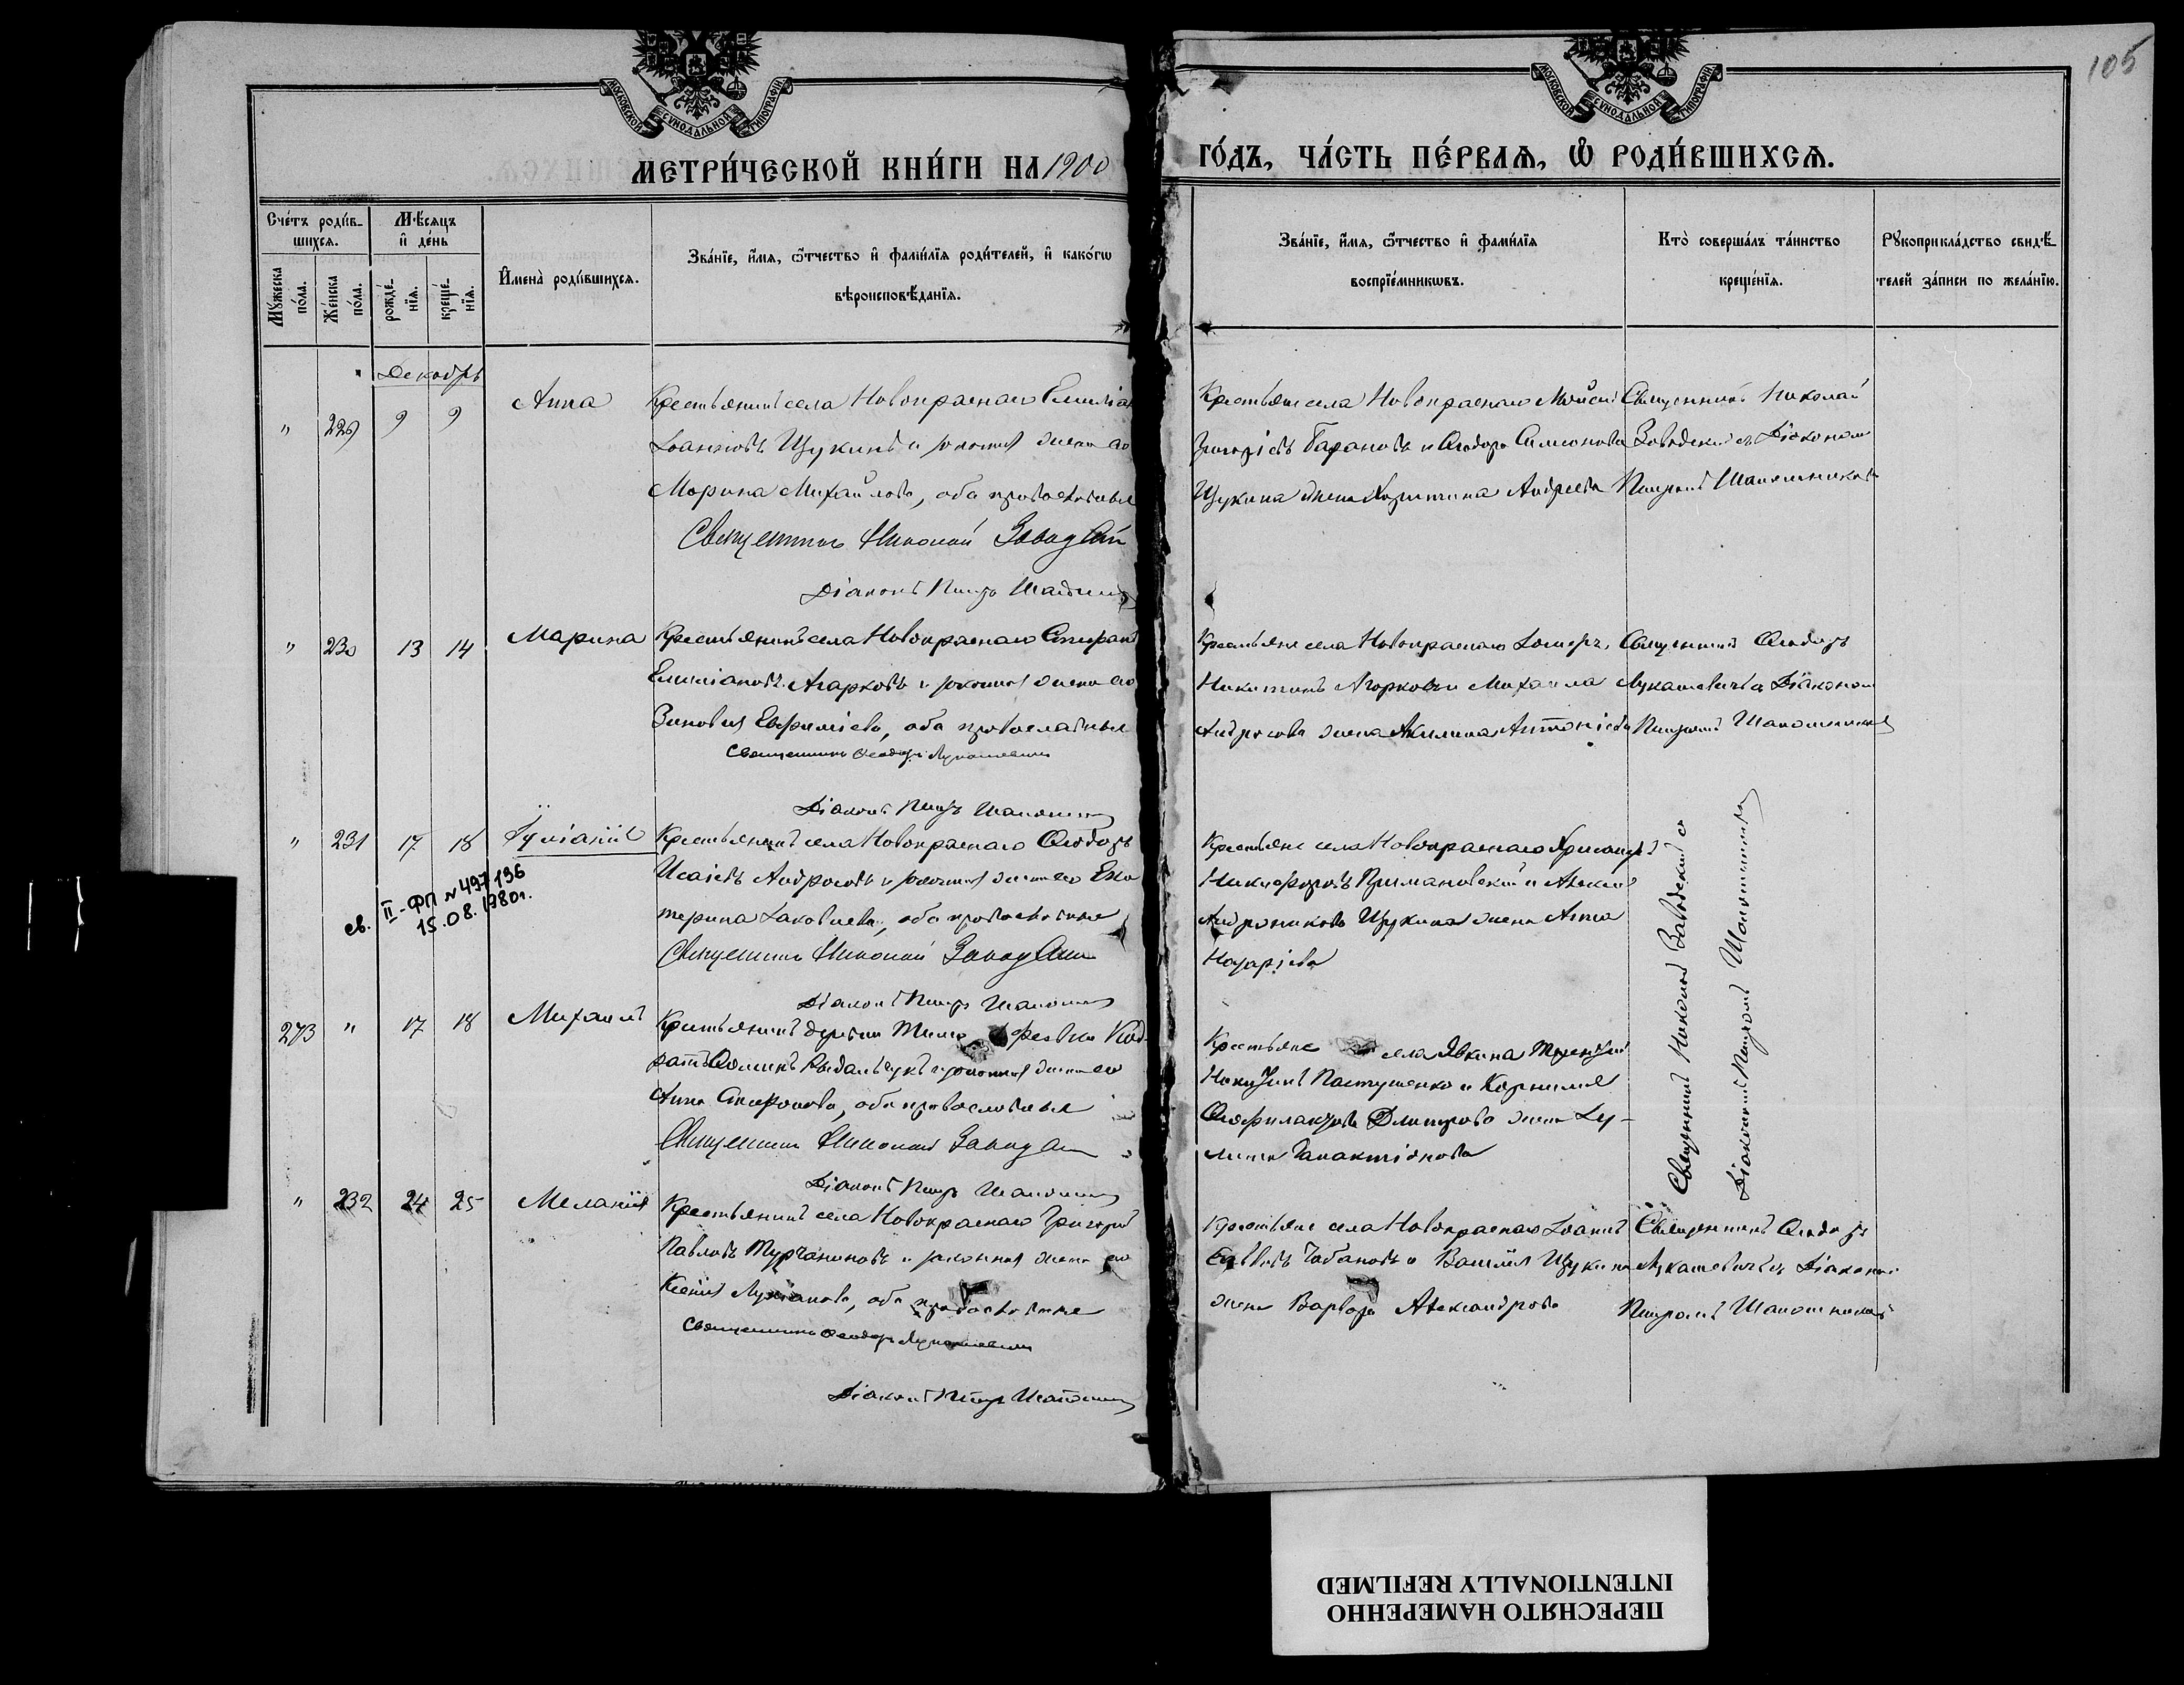 105
МОСКОВСКОЙ СѴНОДАЛЬНОЙ ТИПОГРАФІИ
МОСКОВСКОЙ СѴНОДАЛЬНОЙ ТИПОГРАФІИ
МЕТРИ́ЧЕСКОЙ КНИ́ГИ НА 1900
ГО́ДЪ, ЧА́СТЬ ПЕ́РВАѦ, Ѡ РОДИ́ВШИХСѦ.
Сче́тъ роди́в-
шихсѧ.
Мꙋжеска по́ла.
Же́нска по́ла.
Мѣ́сѧцъ
и҆ де́нь
рожде́-
нїѧ.
креще́-
нїѧ.
И҆мена̀ роди́вшихсѧ.
Зва́нїе, и҆́мѧ, ѻ҆́тчество и҆ фами́лїѧ роди́телей, и҆ како́гѡ
вѣроисповѣ́данїѧ.
Зва́нїе, и҆́мѧ, ѻ҆́тчество и҆ фами́лїѧ
воспрїе́мникѡвъ.
Кто̀ соверша́лъ та́инство
креще́нїѧ.
Рꙋкоприкла́дство свидѣ́-
телей за́писи по жела́нїю.
Декабрь
" 229 9 9 Анна
Крестьянинъ села Новокраснаго Емиліанъ
Іоанновъ Щукинъ и законная жена его
Марина Михайлова, оба православные
Священникъ Николай Завадскій
Діаконъ Петръ Шапошник
Крестьяне села Новокраснаго Моисей
Григоріевъ Барановъ и Ѳеодора Симеонова
Щукина жена Харитина Андреева
Священникъ Николай
Завадскій съ Діакономъ
Петромъ Шапошниковъ
" 230 13 14 Марина
Крестьянинъ села Новокраснаго Стефанъ
Емиліановъ Агарковъ и законная жена его
Зиновія Евфиміева, оба православные
Священникъ Ѳеодоръ Лукашевичъ
Діаконъ Петръ Шапошник
Крестьяне села Новокраснаго
Никитинъ Агарковъ и Михаила
Андросова жена Акилина Антоніева
Священникъ Ѳеодоръ
Лукашевичъ съ Діакономъ
Петромъ Шапошников
" 231 17 18 Іуліанія
св. II-ФП №497196
15.08.1980г.
Крестьянинъ села Новокраснаго Ѳеодоръ
Исаіевъ Андросовъ и законная жена его Ека
терина Іаковлева, оба православные
Священникъ Николай Завадскій
Діаконъ Петръ Шапошник
Крестьяне села Новокраснаго
Никифоровъ и Алексія
Андроникова Щукина жена Анна
Назаріева
Священникъ Николай Завадскій съ
Діакономъ Петромъ Шапошников
273 " 17 18 Михаилъ
Крестьянинъ деревни Код-
ратъ Ѳоминъ и законная жена его
Анна Спиронова, оба православные
Священникъ Николай Завадскій
Діаконъ Петръ Шапошник
Крестьяне села Явкина
Пастушенко и Корнилія
Ѳеофилактова Дмитрова жена Іу-
Галактіонова
" 232 24 25 Меланія
Крестьянинъ села Новокраснаго Григорій
Павловъ Турчаниновъ и законная жена его
Ксенія Лукіанова, оба православные
Священникъ Ѳеодоръ Лукашевичъ
Діаконъ Петръ Шапошник
Крестьяне села Новокраснаго Іоаннъ
Чабановъ и Василія Щукина
жена Варвара Александрова
Священникъ Ѳеодоръ
Лукашевичъ съ Діакономъ
Петромъ Шапошниковъ
ПЕРЕСНЯТО НАМЕРЕННО
INTENTIONALLY REFILMED